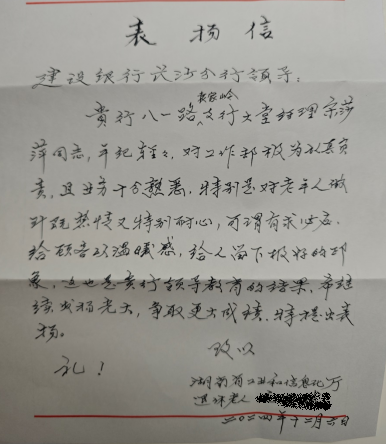 表扬信
建设银行长沙分行领导：
袁家岭
贵行八一路支行大堂经理宗莎
萍同志，年纪轻轻，对工作却极为认真负
责，且业务十分熟悉，特别是对老年人做
到既热情又特别耐心，可谓有求必应，
给顾客以温暖感，给人留下极好的印
象，这也是贵行领导教育的结果，希继
续发扬光大，争取更大成绩，特提出表
扬。
致以
礼！
湖南省工业和信息化厅
退休老人
二〇二四年十二月六日